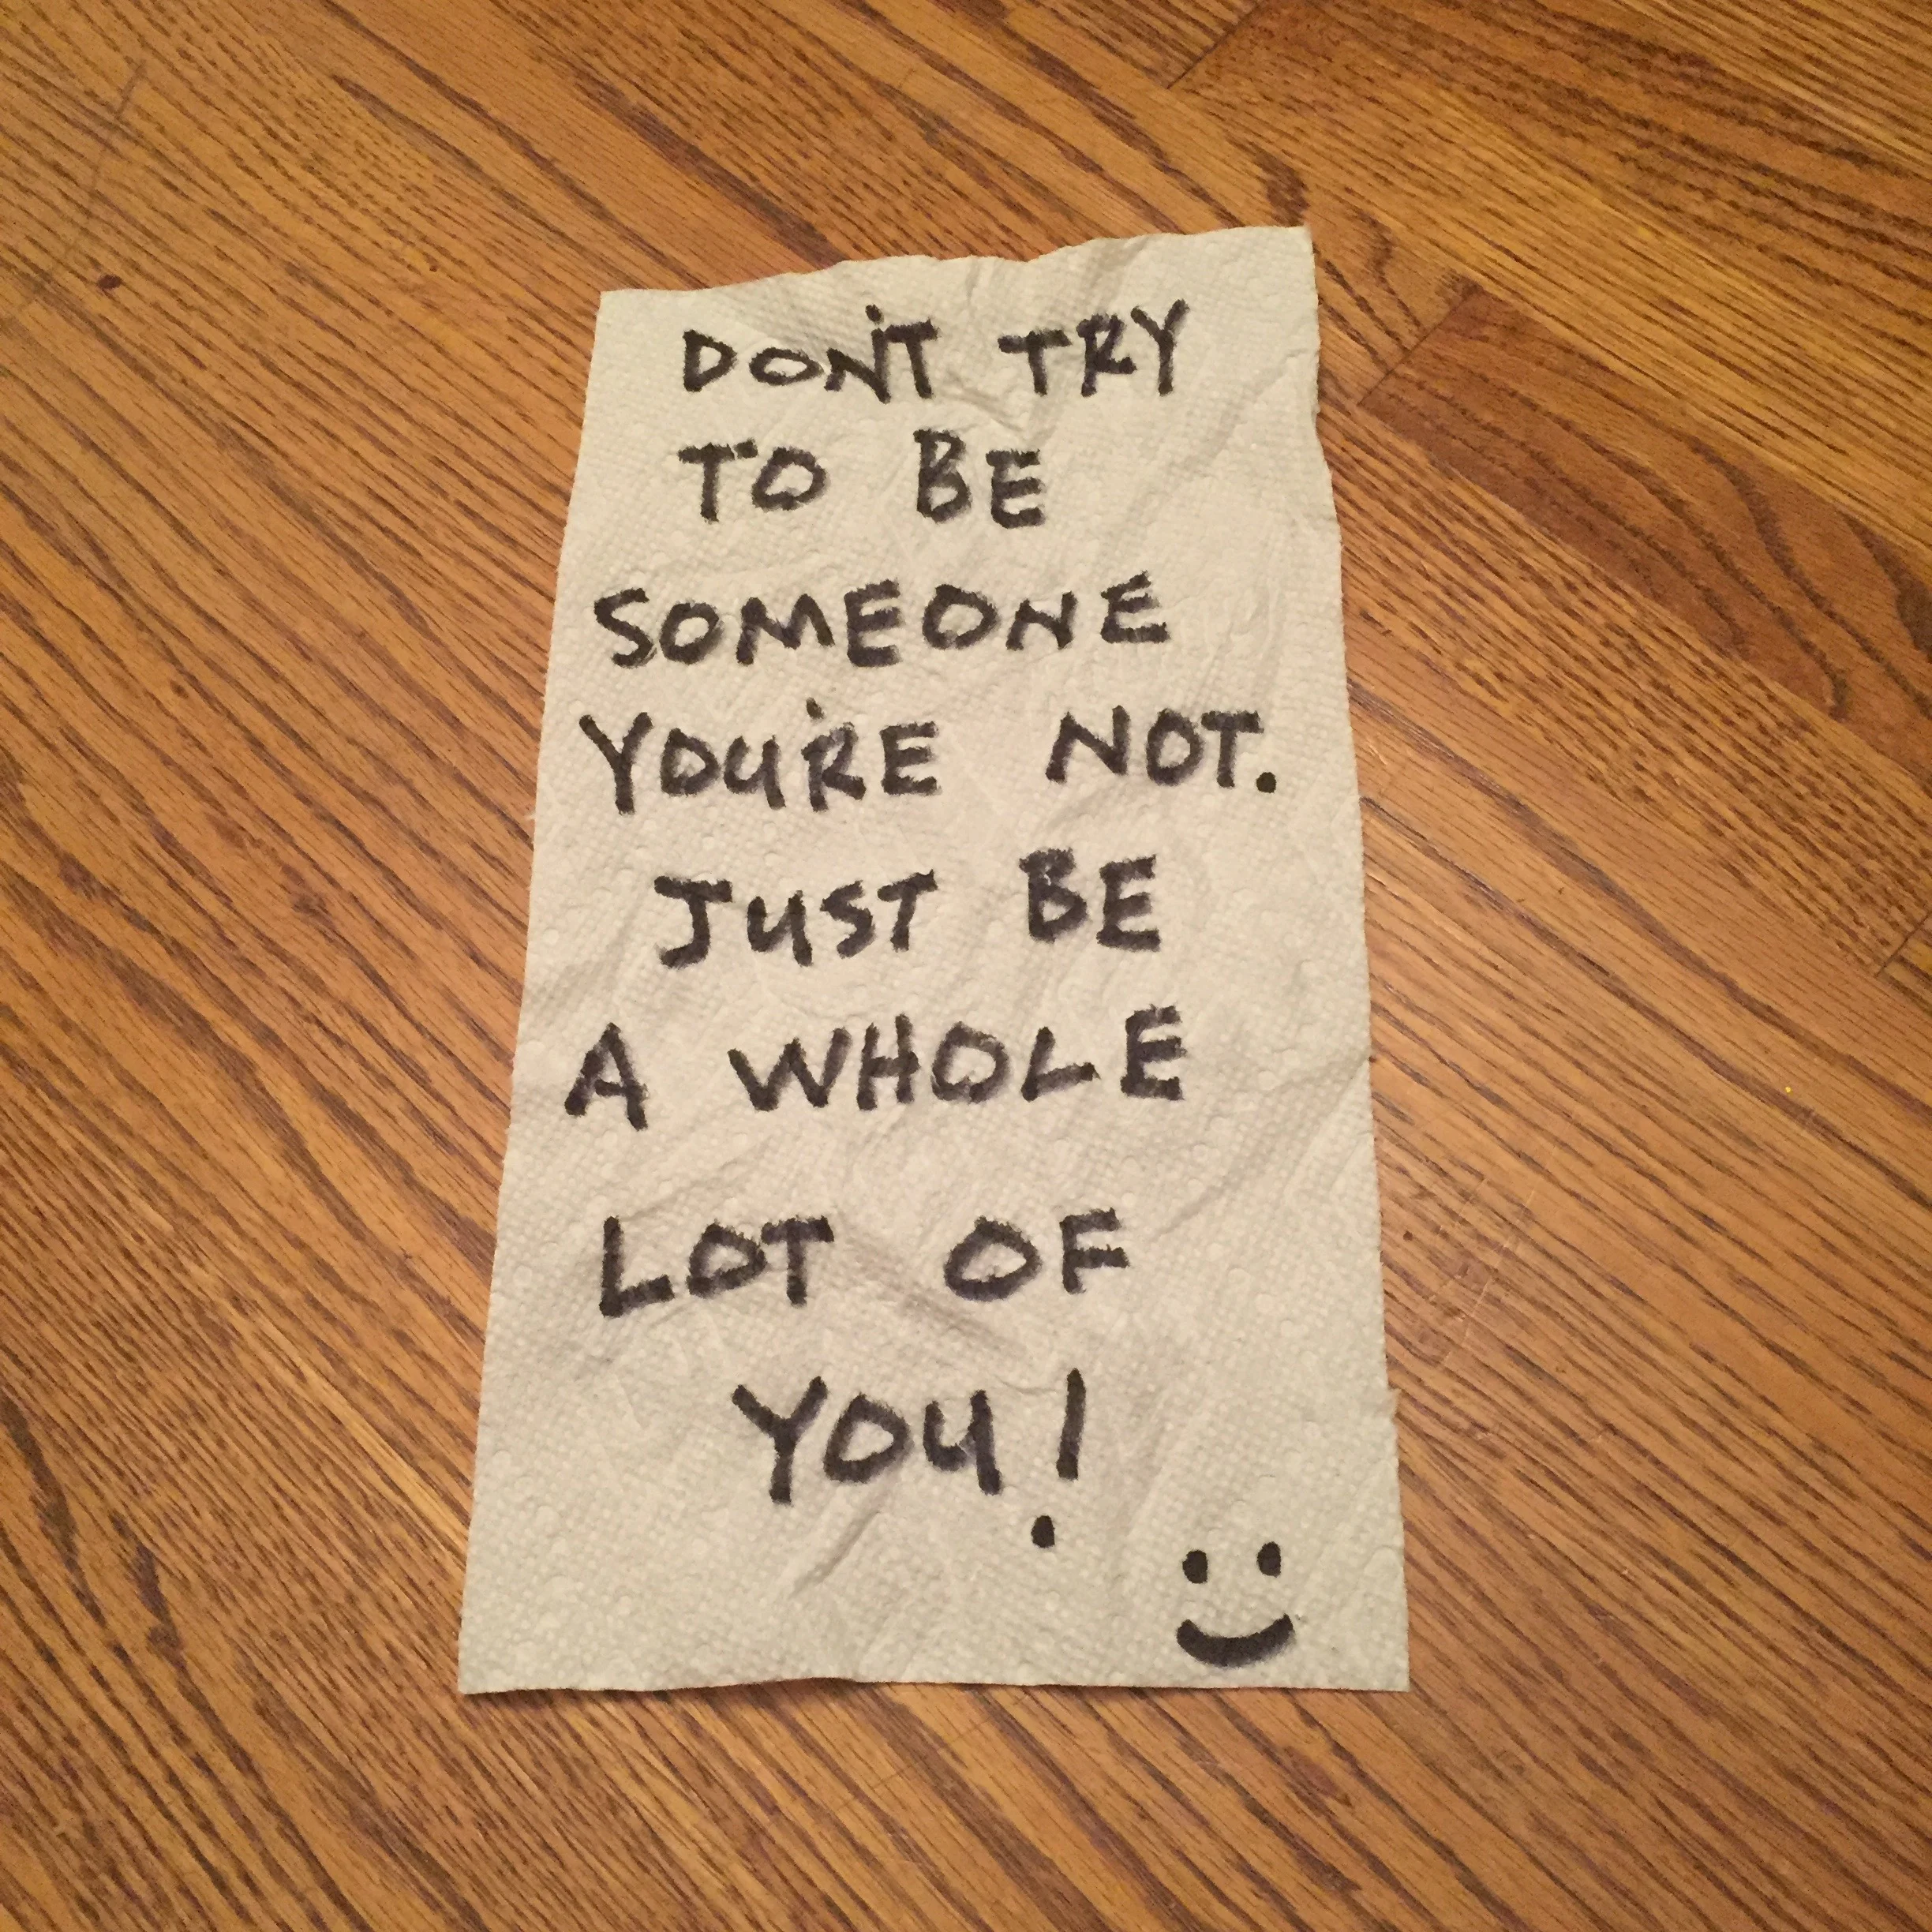 DON'T TRY
TO BE
SOMEONE
YOU'RE NOT.
JUST BE
A WHOLE
LOT OF
YOU!